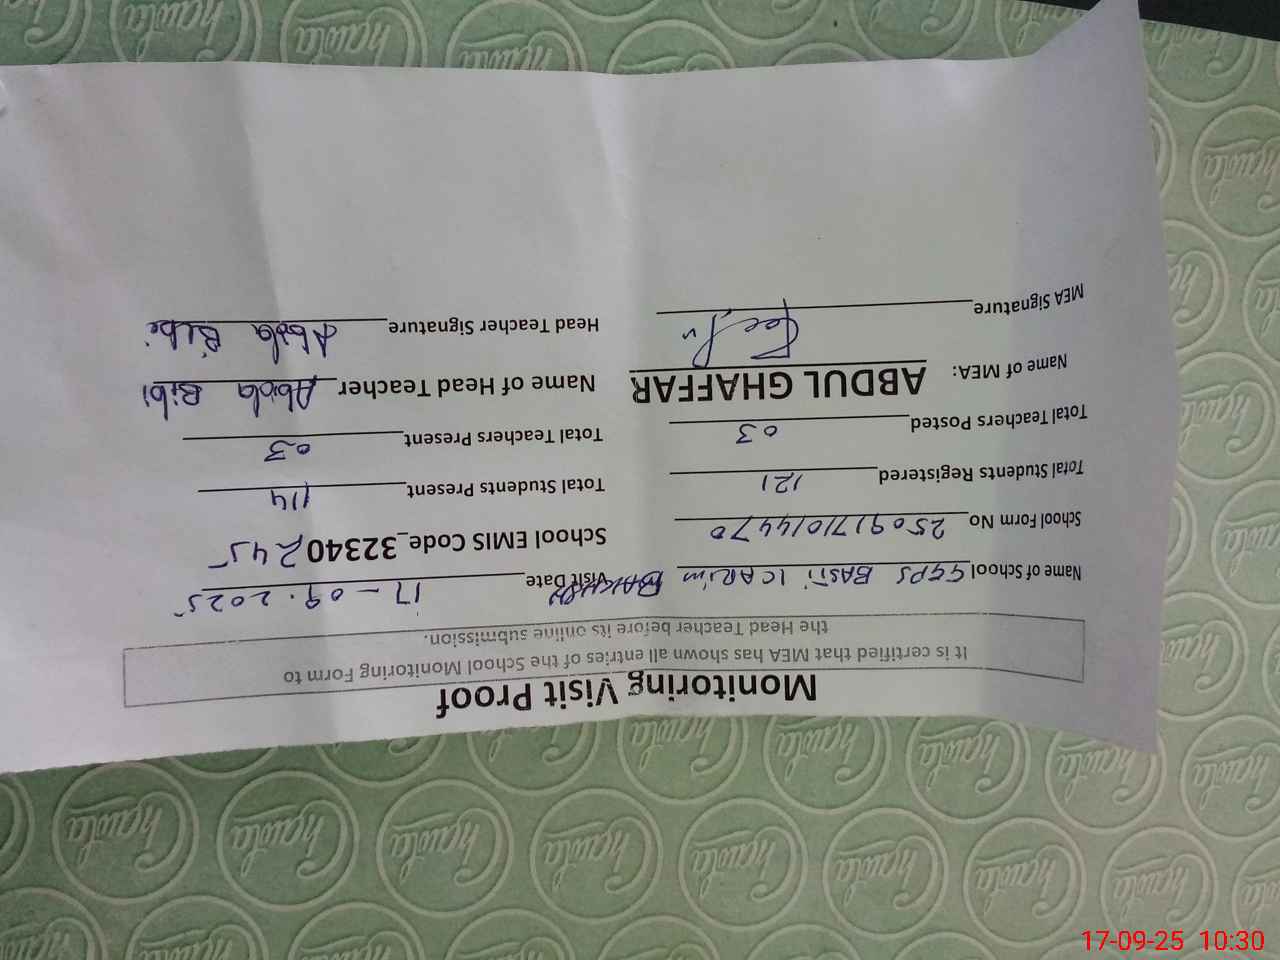 Monitoring Visit Proof
It is certified that MEA has shown all entries of the School Monitoring Form to
the Head Teacher before its online submission.
Name of School GGPS BASTI KARIM BAKHSH Visit Date 17-09.2025
School Form No 2509171014470 School EMIS Code_32340245
Total Students Registered 121 Total Students Present 114
Total Teachers Posted 03 Total Teachers Present 03
Name of MEA: ABDUL GHAFFAR Name of Head Teacher Abida Bibi
MEA Signature Head Teacher Signature Abida Bibi
Chawla
17-09-25 10:30